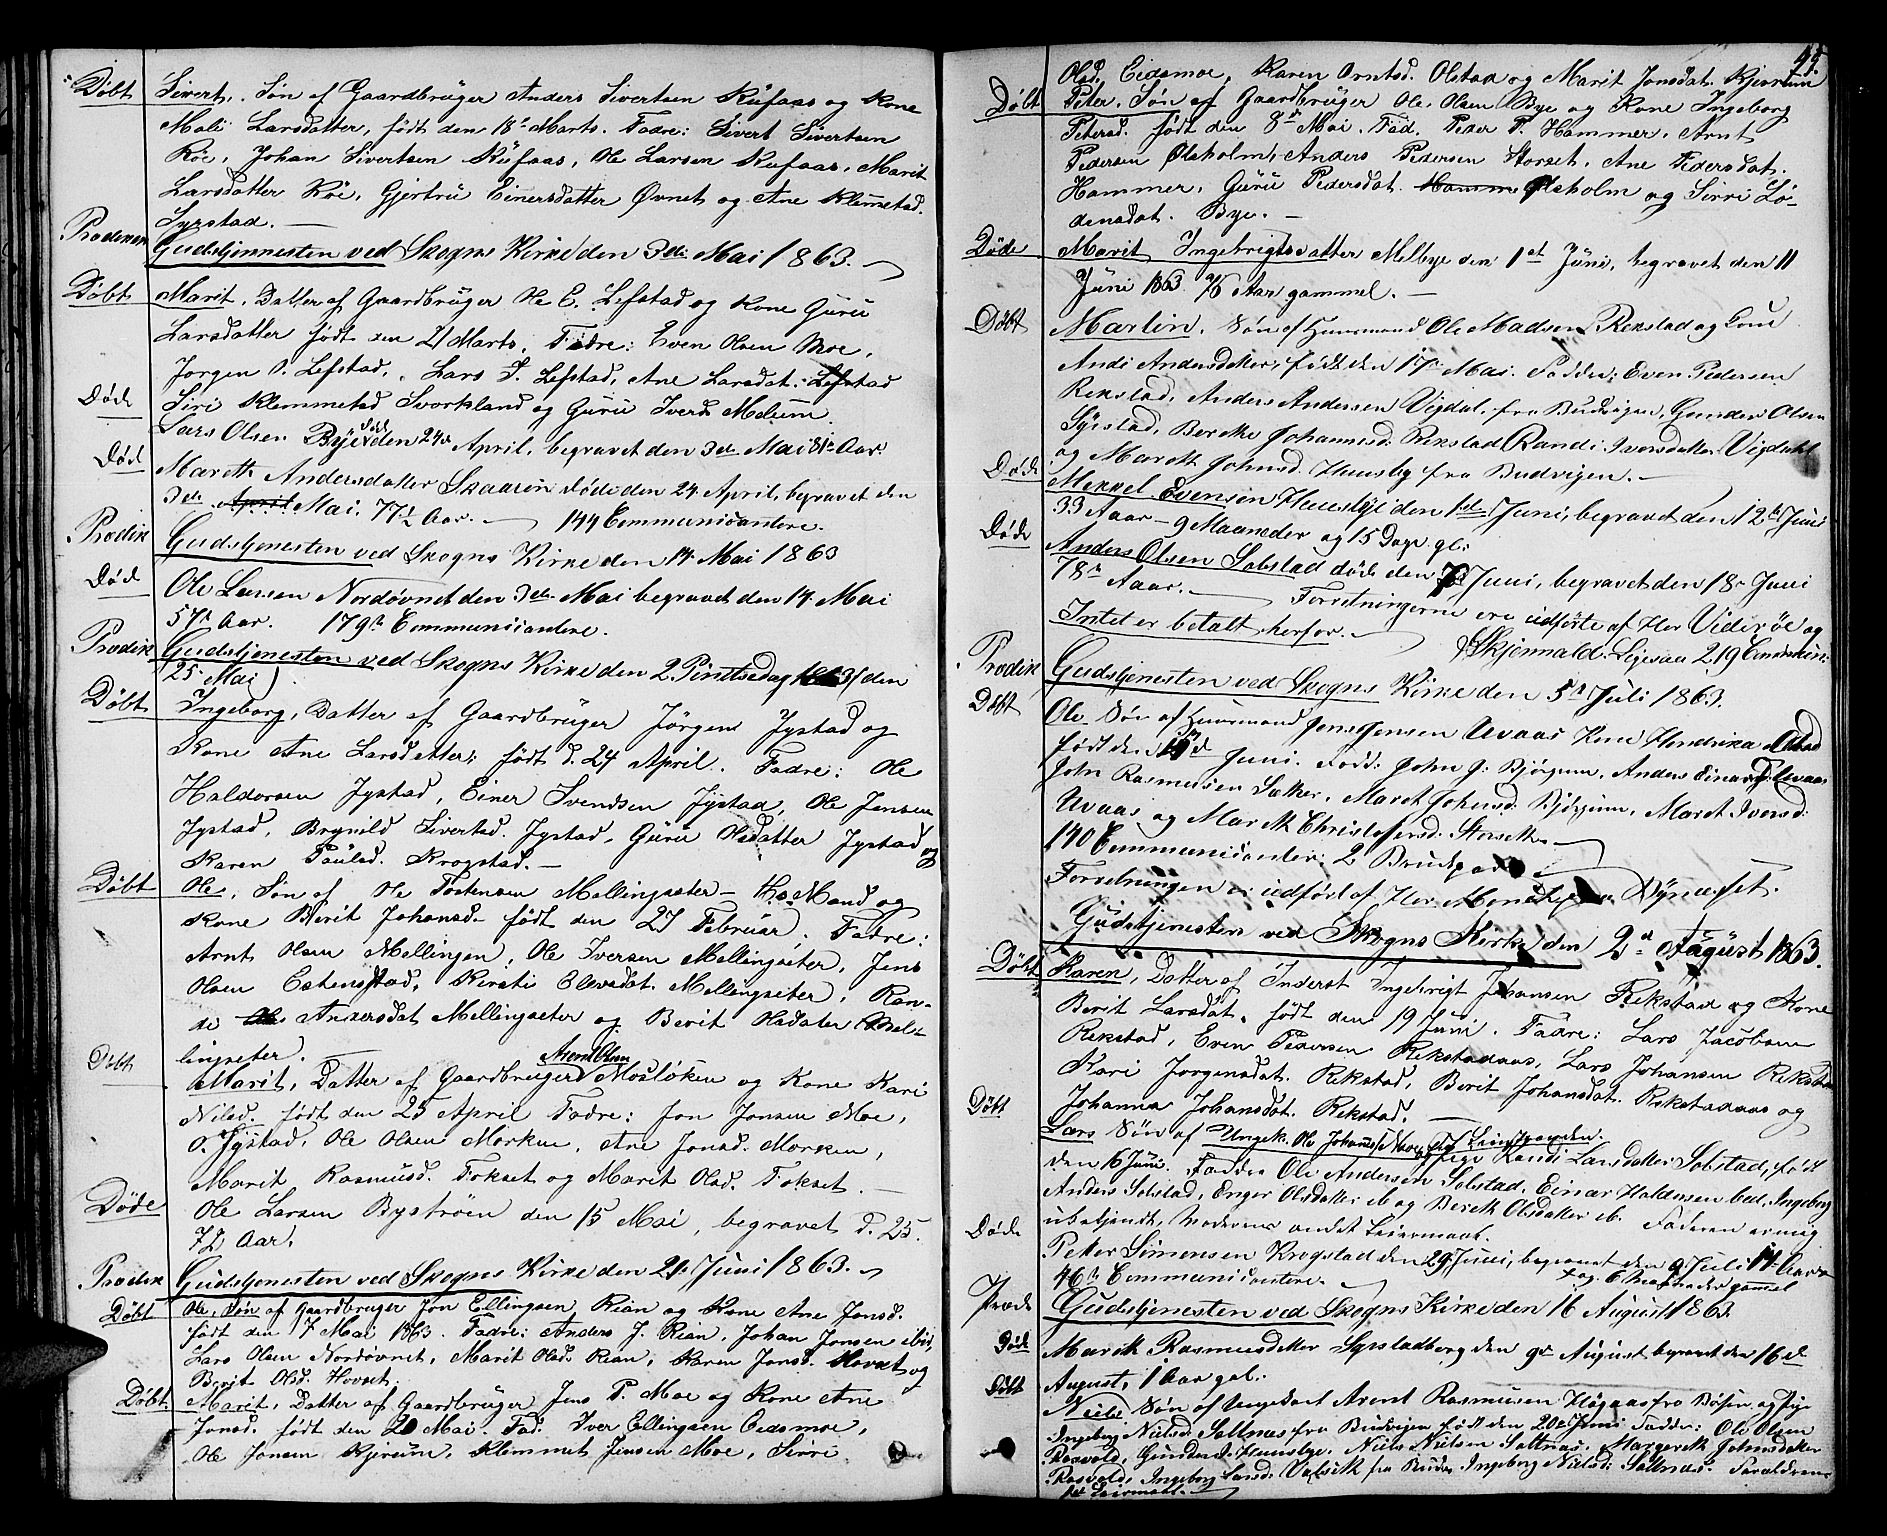 Døbt Sivert, Søn af Gaardbrüger Anders Sivertsen Küfaas og Kone
Mali Larsdatter, født den 18de Marts. Fadre: Sivert Sivertsen
Röe, Johan Sivertsen Küfaas, Ole Larsen Küfaas, Marit
Larsdatter Röe, Gjertrü Einersdatter Øvnet og Ane Klemetsd.
Syrstad. —
Prædiken Gudstjennesten ved Skogns Kirke den 3de Mai 1863. —
Døbt Marit, Datter af Gaardbrüger Ole E. Lefstad og Kone Gürü
Larsdatter født den 21 Marts. Fadre: Even Olsen Moe,
Jørgen O. Lefstad, Lars I. Lefstad, Ane Larsdat. Lefstad
Siri Klemmetsd Svorkland og Gürü Iversd. Melüm
Døde Lars Olsen Bye den 24de April, begravet den 3de Mai Aar.
Død Mareth Andersdatter Skaarün døde den 24 April, begravet den
3de April Mai. 77½ Aar. — 144 Communicantere.
Prædik Gudstjenesten ved Skogns Kirke den 14 Mai 1863
Død Ole Larsen Nordøvnet den 3de Mai begravet den 14 Mai
57 Aar. 179 Communicantere.
Prædik Gudstjenesten ved Skogns Kirke den 2 Pintsedag 1863 (den
25 Mai)
Døbt Ingeborg, Datter af Gaardbrüger Jörgen Jystad og
Kone Ane Larsdatter, født d. 24 April. Fadre: Ole
Haldorsen Jystad, Einer Svendsen Jystad, Ole Jensen
Jystad, Brynild Sivertsd. Jystad, Gürü Olsdatter Jystad og
Karen Paulsd. Krogstad. —
Døbt Ole, Søn af Ole Tostensen Mellingsæter — Hüsmand og
Kone Berit Johansd. født den 27 Februar. Fadre:
Arnt Olsen Mellingen, Ole Iversen Mellingsæter, Jens
Olsen Estensstad, Kirsti Olevsdat. Mellingsæter, Ran-
de Andersdat Mellingsæter og Berit Olsdater Mel-
lingseter.
Døbt Marit, Datter af Gaardbrüger Arent Olsen Mosløken og Kone Kari
Nilsd. født den 25 April Fadre: Jon Jonsen Moe,
O. Jystad, Ole Olsen Morken, Ane Jonsd. Morken,
Marit Rasmusd. Fokset og Marit Olsd. Fokset. —
Døde Ole Larsen Bystrøen den 15 Mai, begravet d. 25.
72 Aar.
Prædik Gudstjenesten ved Skogns Kirke den 21 Juni 1863. —
Døbt Ole, Søn af Gaardbruger Jon Ellingsen Rian og Kone Ane Jonsd.
født den 7 Mai 1863. Fadre: Anders J. Rian, Johan Jonsen ibid,
Lars Olsen Nordøvnet, Marit Olsd. Rian, Karen Jonsd. Hovset og
Berit Olsd. Hovset.
Døbt Marit, Datter af Gaardbrüger Jens P. Moe og Kone Ane
Jonsd. født den 20 Mai. Fad: Iver Ellingsen Eidsmoe,
Ole Jonsen Kjerüm, Klemmet Jensen Moe, Sirri
Olsd. Eidsmoe, Karen Arntsd. Olstad og Marit Jonsdat. Kjerüm
Døbt Peter, Søn af Gaardbrüger Ole Olsen Bye og Kone Ingeborg
Petersd. født den 8de Mai. Fad. Peder P. Hammer, Arnt
Pedersen Ølsholm, Anders Pedersen Storset, Ane Pedersdat.
Hammer, Gürü Pedersdat. Ølsholm og Sirri Lø-
densdat. Bye. —
Døde Marit Ingebrigtsdatter Melbye den 1st Jüni, begravet den 11
Jüni 1863 Aar gammel. —
Døbt Martin, Søn af Huusmand Ole Madsen Rekstad og Kone
Andi Andersdatter, født den 17 Mai. Faddre: Even Pedersen
Rekstad, Anders Andersen Vigdal fra Budvigen, Gunder Olsen
Syrstad, Berethe Johannesd: Rekstad Randi Iversdatter Vigdahl
og Mareth Johnsd. Huusby fra Budvigen. —
Døde Mekkel Evensen Huusbye den 1ste Juni, begravet den 12te Juni
33 Aar — 9 Maaneder og 15 Dage gl:
Døde Anders Olsen Solstad døde den Juni, begravet den 18 Juni
78 Aar. — Forretningerne ere udførte af Her Viderøe og
Intet er betalt herfor. — Skjenvald. Ligesaa 219
Prædik Gudstjenesten ved Skogns Kirke den 5te Juli 1863.
Døbt Ole Søn af Huusmand Jens Jensen Uvaas Kone Hendrika
født den Juni. Fadd: John J: Bjørgum, Anders
John Rasmussen Sæther, Maret Johnsd: Bjørgum, Maret Iversd:
Uvaas og Mareth Christofersd: Storseth. —
140 Communicanter. 2 Brudepar.
Forretningen er udført af Her
Gudstjenesten ved Skogns Kirke den 2d August 1863.
Døbt Karen, Datter af Inderst Ingebrigt Johansen Rekstad og Kone
Berit Larsdat. født den 19 Juni. Fadre: Lars Jacobsen
Rekstad, Even Pedersen Rekstadaas, Lars Johansen Rekstad
Kari Jorgensdat. Rekstad, Berit Johansdat. Rekstadaas og
Johanna Johansdat. Rekstad.
Døbt Lars Søn af Ungk. Ole Johannes Pige Randi Larsdatter Solstad, født
den 16 Juni. Faddre Ole Andersen Solstad, Einar Haldosen
Anders Solstad, Enger Olsdatter ib og Bereth Olsdatter ib. Faderen er mig
ubekjendt, Moderens andet Leiermaal.
Døde Peter Simensen Krogstad den 29 Juni, begravet den 2 Juli 11 Aar
46 Communicantere. — og 6 Maaneder gammel
Præd. Gudstjenesten ved Skogns Kirke den 16 August 1863
Døde Mareth Rasmusdatter Syrstadberg den 9de August begravet den 16de
August, 1 Aar gal.
Døbt Niels Søn af Ungekarl Arent Rasmusen Høgaas fra Børsen og Pige
Ingeborg Nielsd Saltnæs fra Budvigen født den 20de Juni Faddre: Ole Olsen
Rosvold, Gunder I. Huusbye, Niels Nielsen Saltnæs, Margereth Johnsdatter
Rosvold, Ingeborg Larsd. fra Budv. Ingeborg Nielsd: Saltnæs. Forældrenes
1ste Leiermaal. —